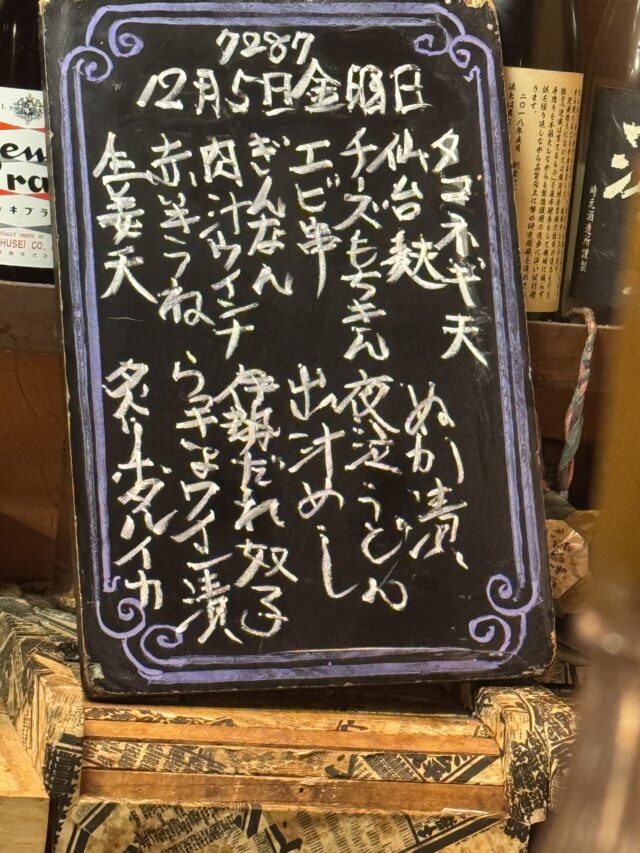 7287
12月5日金曜日
タマネギ天
仙台麩
チーズもちきん
エビ串
ぎんなん
肉汁ウインナ
生姜天
ぬか漬
夜泣うどん
出汁めし
伊勢だれ奴子
らっきょワイン漬
炙りホタルイカ
二〇一八年五月
崎元酒造所謹製
HUSEI CO.